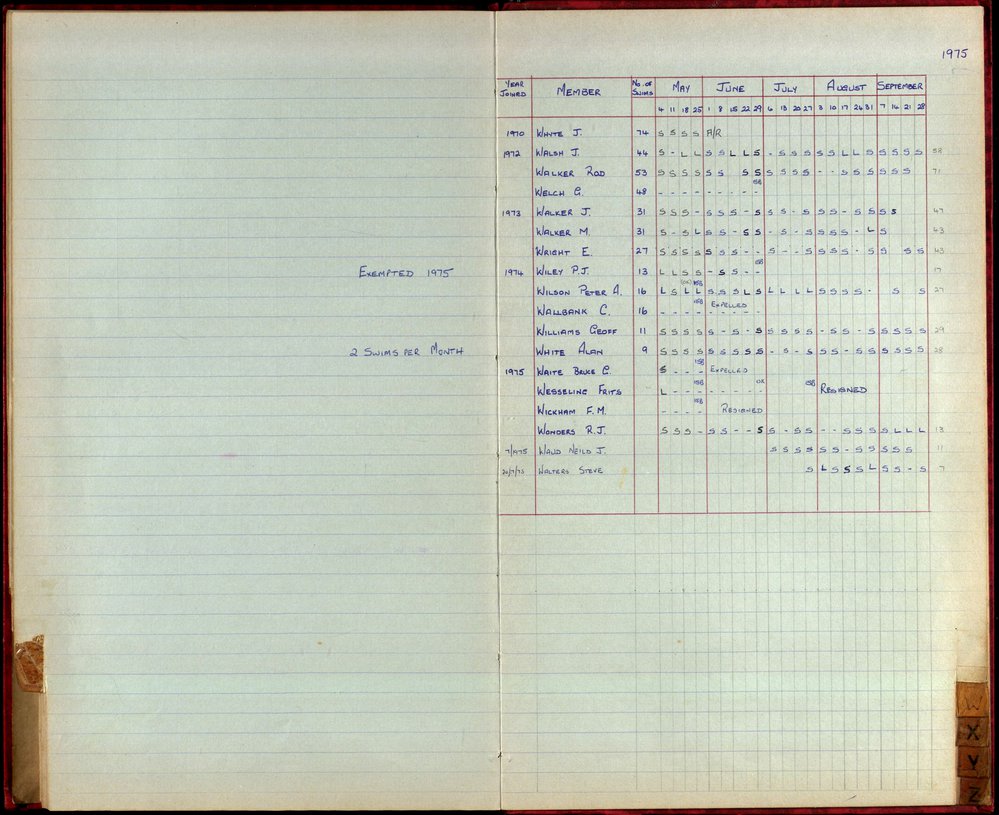 1975
YEAR JOINED MEMBER No. OF SWIMS MAY JUNE JULY AUGUST SEPTEMBER
4 11 18 25 1 8 15 22 29 6 13 20 27 3 10 17 24 31 7 14 21 28
1970 WHYTE J. 74 S S S S A/R
1972 WALSH J. 44 S - L L S S L L S - S S S S S L L S S S S S 58
WALKER ROD 53 S S S S S S S S S S S S - - S S S S S S 71
WELCH G. 48 - - - - - - - - 15B
1973 WALKER J. 31 S S S - S S S - S S S - S S S - S S S S 47
WALKER M. 31 S - S L S S - S S - S - S S S S S - L S 43
WRIGHT E. 27 S S S S S S S - - S - - S S S S - S S S S 43
EXEMPTED 1975 1974 WILEY P.J. 13 L L S S - S S - - 15B 17
WILSON PETER A. 16 L S L L S S S L S L L L L S S S S - S S 27
WALLBANK C. 16 - - - - 15B EXPELLED
WILLIAMS GEOFF 11 S S S S S - S - S S S S S - S S - S S S S S 29
2 SWIMS PER MONTH WHITE ALAN 9 S S S S S S S S S - S - S S S - S S S S S S 28
1975 WAITE BRUCE G. S - - - 15B EXPELLED
WESSELING FRITS L - - - 15B - - - - - OX 15B RESIGNED
WICKHAM F.M. - - - - 15B RESIGNED
WONDERS R.J. S S S - S S - - S S - S S - - S S S S L L L 13
WAUD NEILD J. S S S S S S - S S S S S 11
20/7/75 WALTERS STEVE S L S S S L S S - S 7